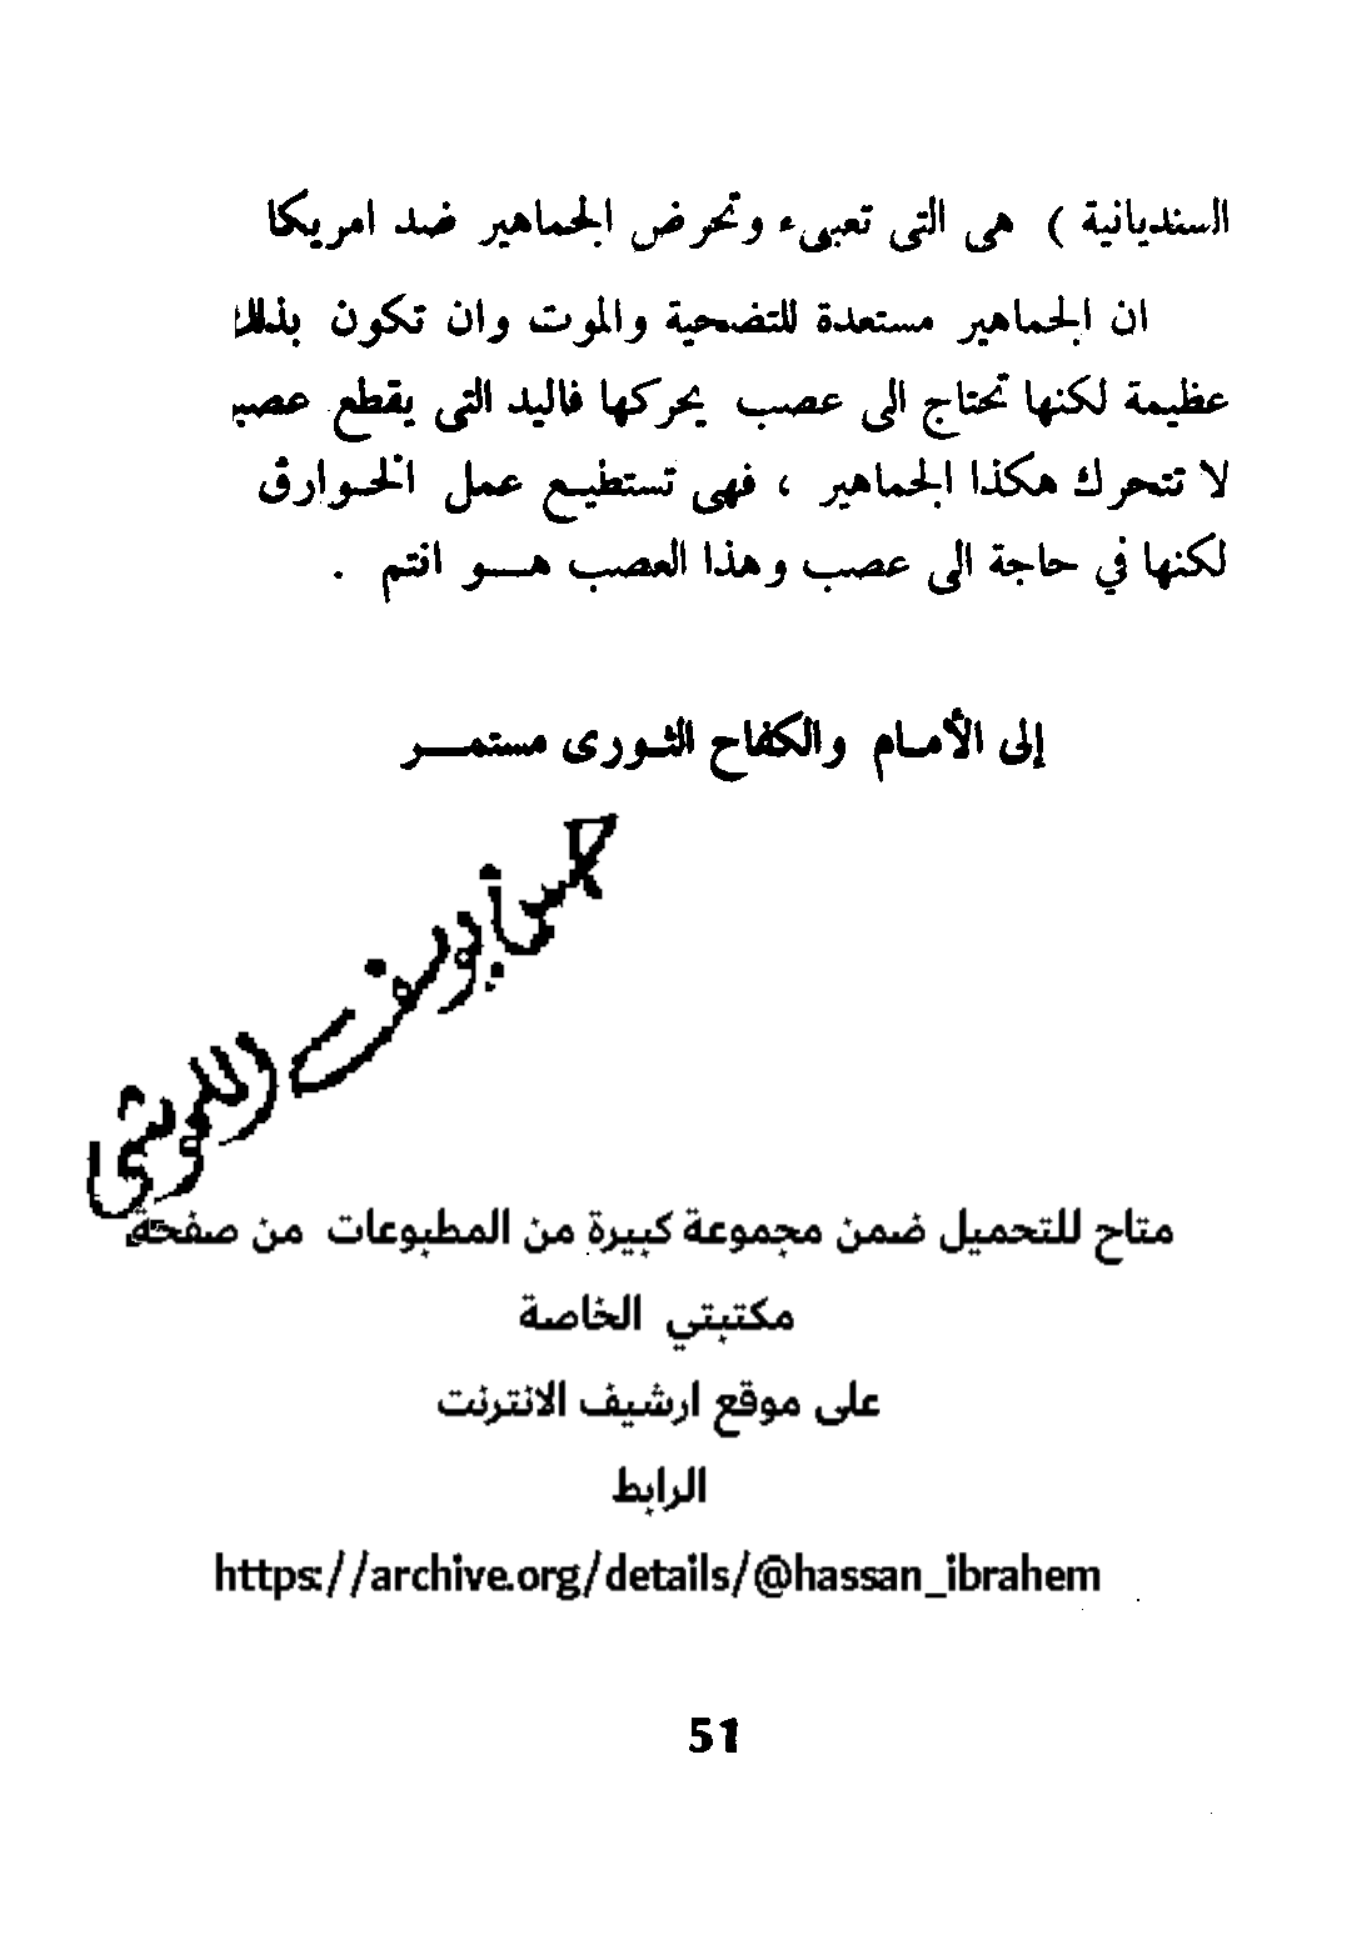 السنديانية ) هى التى تعبىء وتحرض الجماهير ضد امريكا
ان الجماهير مستعدة للتضحية والموت وان تكون بذلك
عظيمة لكنها تحتاج الى عصب يحركها فاليد التى يقطع عصبـ
لا تتحرك هكذا الجماهير ، فهى تستطيـع عمل الخـوارق
لكنها في حاجة الى عصب وهذا العصب هـــو انتم .
إلى الأمـام والكفاح الثـورى مستمـــر
متاح للتحميل ضمن مجموعة كبيرة من المطبوعات من صفحة
مكتبتي الخاصة
على موقع ارشيف الانترنت
الرابط
https://archive.org/details/@hassan_ibrahem
51